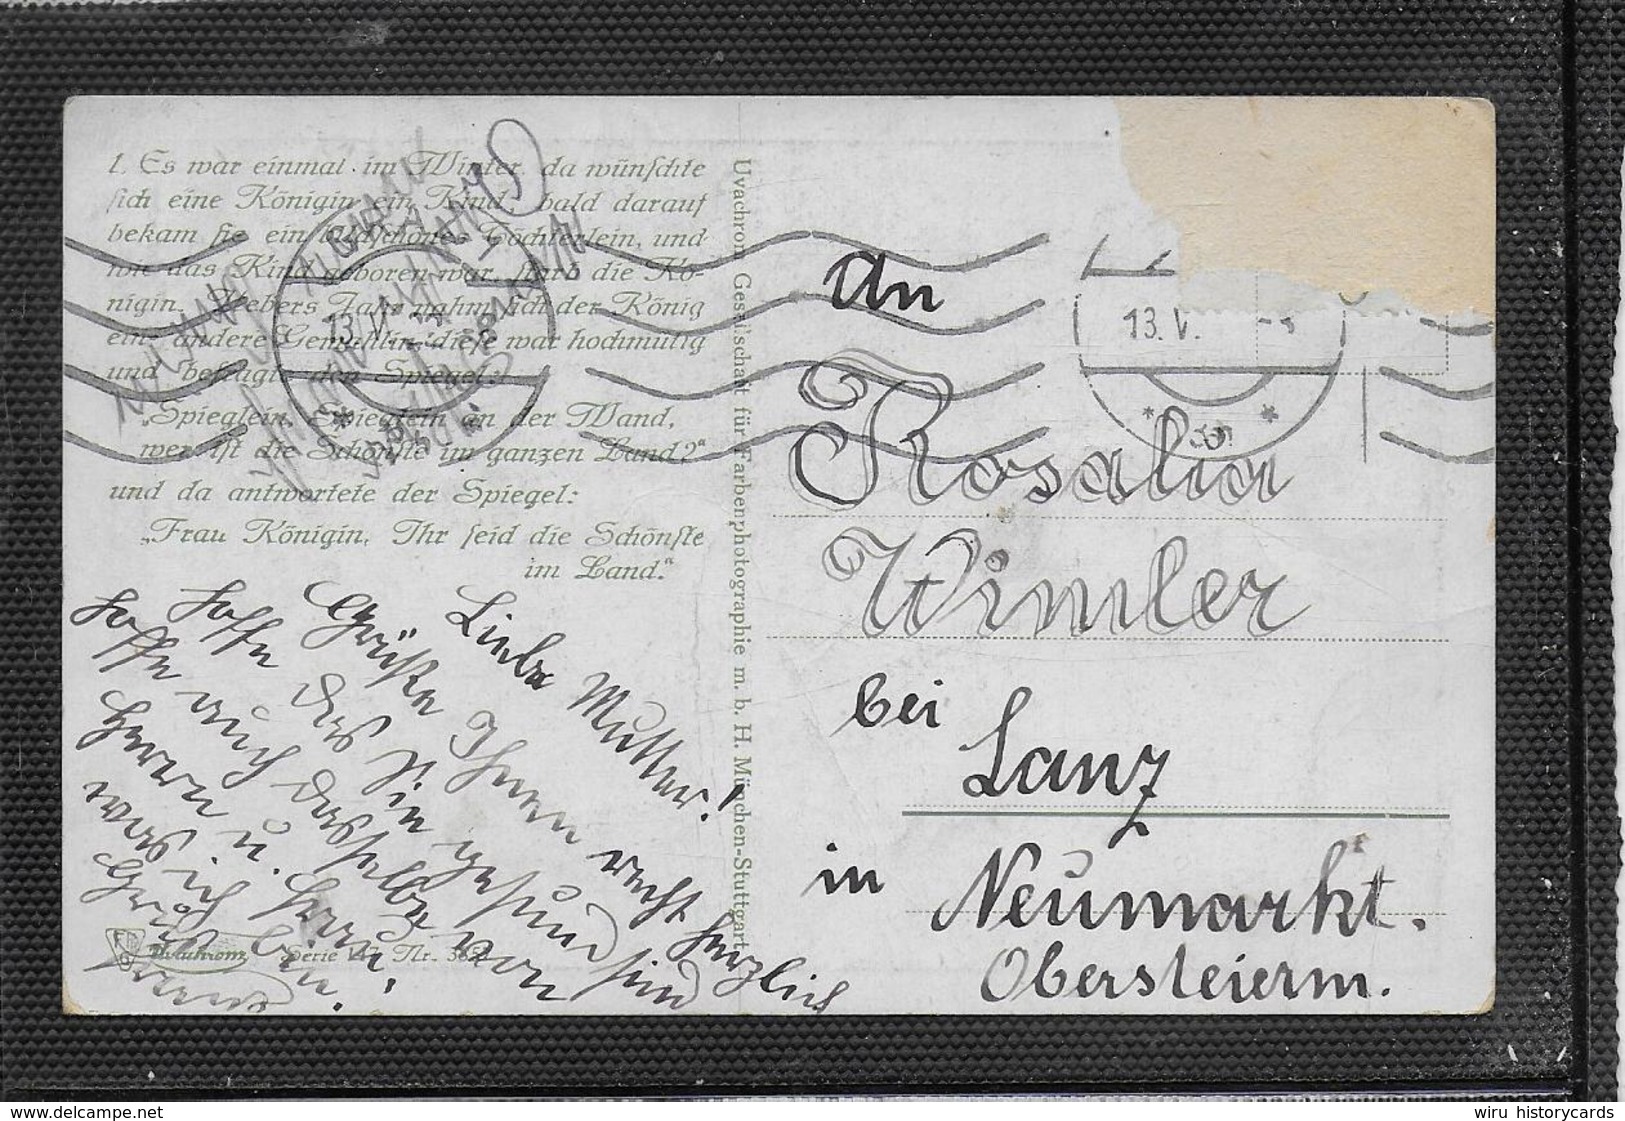 1. Es war einmal im Winter, da wünschte
sich eine Königin ein Kind, bald darauf
bekam sie ein bildschönes Töchterlein, und
wie das Kind geboren war, starb die Kö-
nigin. Uebers Jahr nahm sich der König
eine andere Gemahlin, diese war hochmütig
und befragte den Spiegel:
„Spieglein, Spieglein an der Wand,
wer ist die Schönste im ganzen Land?"
und da antwortete der Spiegel:
„Frau Königin, Ihr seid die Schönste
im Land."
Uvachrom Gesellschaft für Farbenphotographie m. b. H. München-Stuttgart
13. V.
13. V.
An
Rosalia
Wimler
bei
Lanz
in
Neumarkt.
Obersteierm.
Liebe Mutter!
Grüße Ihnen recht herzlich
hoffe das Sie gesund sind
hoffe auch dasselbe von
Herrn u.
was ich bin.
Uvachrom Serie 147 Nr.
delcampe.net
wiru historycards